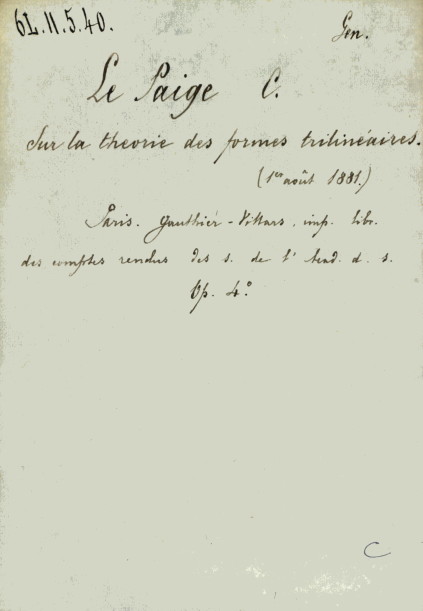 6L.11.5.40.
Gen.
Le Paige C.
Sur la theorie des formes trilinéaires.
(1er août 1881.)
Paris. Gauthier-Villars, imp. libr.
des comptes rendus des s. de l'Acad. d. s.
Op. 4.º
C